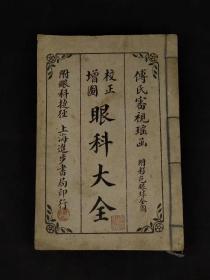 傅氏審視瑤函
附彩色眼球全圖
校正
增圖
眼科大全
附眼科捷徑
上海進步書局印行